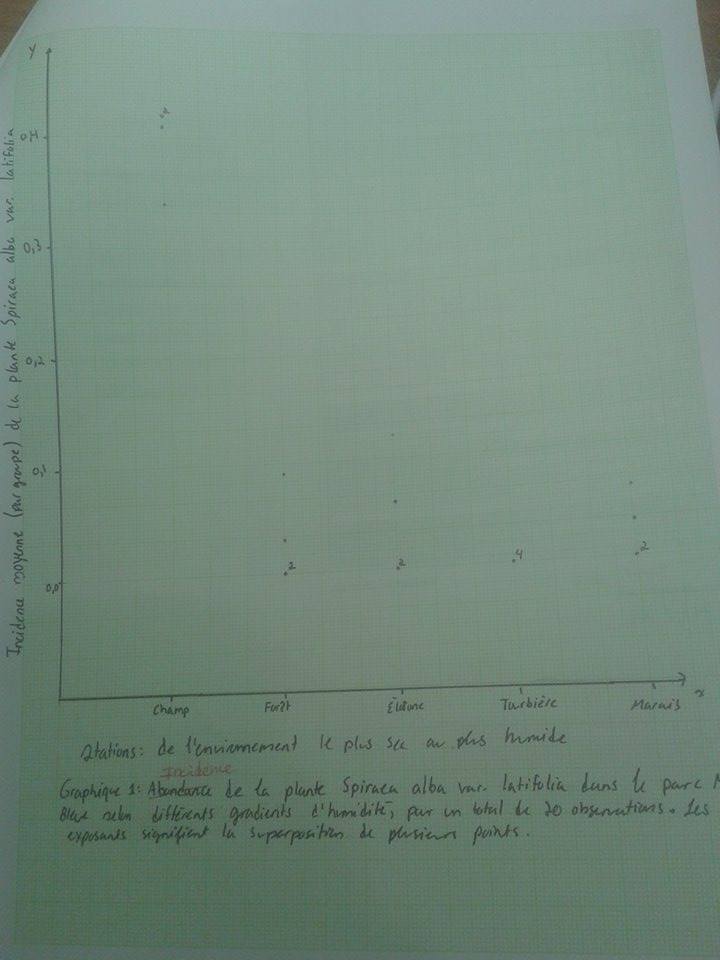 Y
0,4
0,3
0,2
0,1
0,0
Incidence moyenne (par groupe) de la plante Spiraea alba var. latifolia
2
2
4
2
x
Champ
Forêt
Turbière
Marais
Stations: de l'environnement le plus sec au plus humide
Incidence
Graphique 1: Abondance de la plante Spiraea alba var. latifolia dans le parc
Bleue selon différents gradients d'humidité, pour un total de 20 observations. Les
exposants signifient la superposition de plusieurs points.